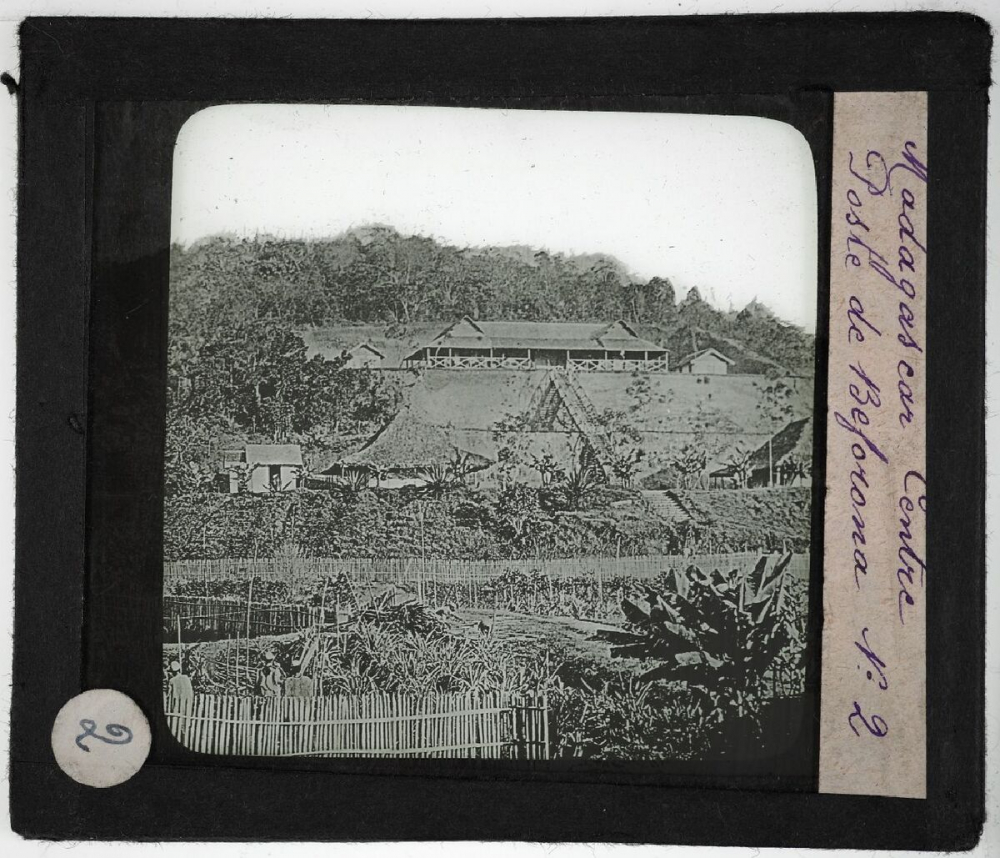 Madagascar Centre
Poste de Béforona N: 2
2